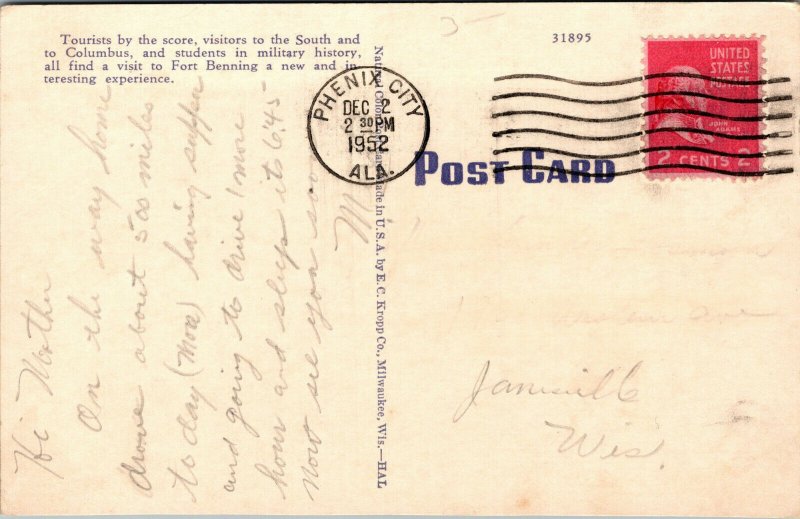 Tourists by the score, visitors to the South and
to Columbus, and students in military history,
all find a visit to Fort Benning a new and in-
teresting experience.
5-
31895
UNITED
STATES
POSTAGE
JOHN
ADAMS
2 CENTS 2
PHENIX CITY
DEC 2
2 30 PM
1952
ALA.
POST CARD
Made in U.S.A. by E. C. Kropp Co., Milwaukee, Wis.—HAL
Hi Mother
On the way home
drove about 500 miles
to day (Mon) having supper
and going to drive 1 more
hour and sleep it 6:45
now see you soon
M
Janesville
Wis.